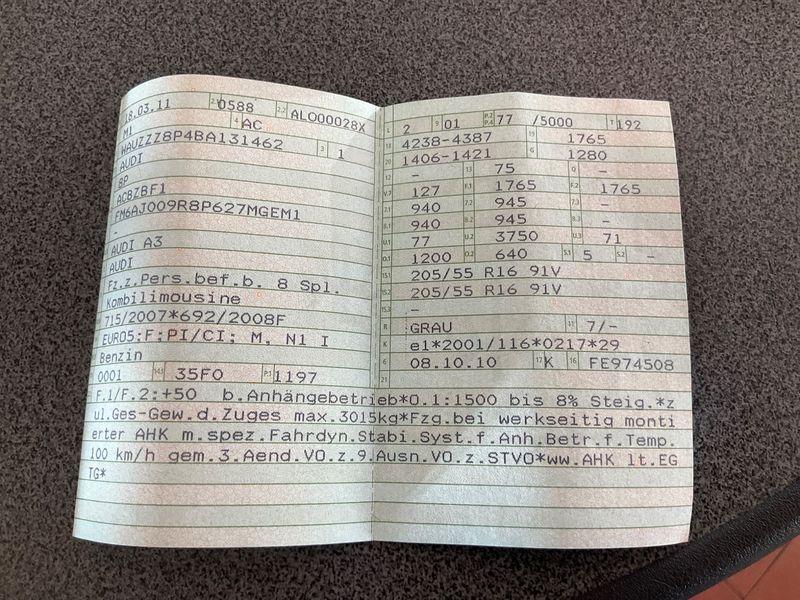 18.03.11 2.1 0588 2.2 ALO00028X
M1 4 AC
WAUZZZ8P4BA131462 3 1
AUDI
8P
ACBZBF1
FM6AJ009R8P627MGEM1
-
AUDI A3
AUDI
Fz.z.Pers.bef.b. 8 Spl.
Kombilimousine
715/2007*692/2008F
EURO5;F;PI/CI; M, N1 I
Benzin
0001 14.1 35F0 P.1 1197
L 2 9 01 P.2 P.4 77 /5000 T 192
18 4238-4387 19 1765
20 1406-1421 G 1280
12 - 13 75 Q -
V.7 127 F.1 1765 F.2 1765
7.1 940 7.2 945 7.3 -
8.1 940 8.2 945 8.3 -
U.1 77 U.2 3750 U.3 71
O.1 1200 O.2 640 S.1 5 S.2 -
15.1 205/55 R16 91V
15.2 205/55 R16 91V
15.3 -
R GRAU 11 7/-
K e1*2001/116*0217*29
6 08.10.10 17 K 16 FE974508
21
F.1/F.2:+50 b.Anhängebetrieb*O.1:1500 bis 8% Steig.*z
ul.Ges-Gew.d.Zuges max.3015kg*Fzg.bei werkseitig monti
erter AHK m.spez.Fahrdyn.Stabi.Syst.f.Anh.Betr.f.Temp.
100 km/h gem.3.Aend.VO.z.9.Ausn.VO.z.STVO*ww.AHK lt.EG
TG*